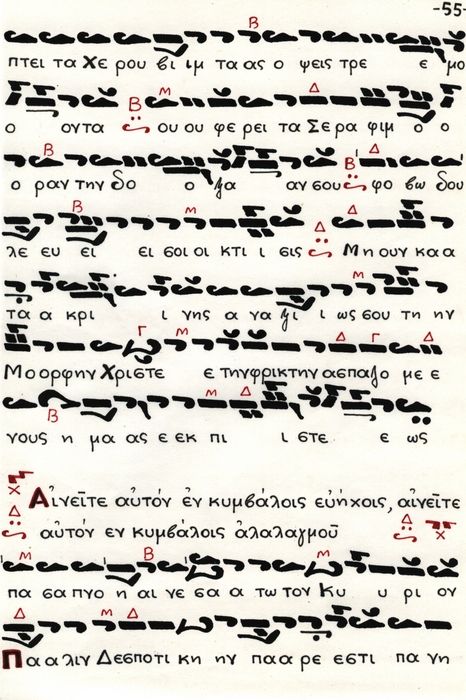 -55-
πτει τα Χε ρου βι ιμ τα ας ο ψεις τρε ε μο
ο οντα ου ου φε ρει τα Σε ρα φιμ ο ο
ο ραν την δο ο ξα αν σου φο βω δου
λε ευ ει ει σοι οι κτι ι σις Μη ουγ κα α
τα α κρι ι νης α γα λι ι ως σου τη ην
Μο ορφην Χριστε ε την φρικτην ασπαλο με ε
γους η μα ας ε εκ πι ι στε ε ως
Αἰνεῖτε αὐτόν ἐν κυμβάλοις εὐήχοις, αἰνεῖτε
αὐτόν εν κυμβάλοις ἀλαλαγμοῦ
πα σα πνο η αι νε σα α τω τον Κυ υ ρι ον
Πα αλιν Δεσποτι κη ην πα αρ ε εστι πα γη